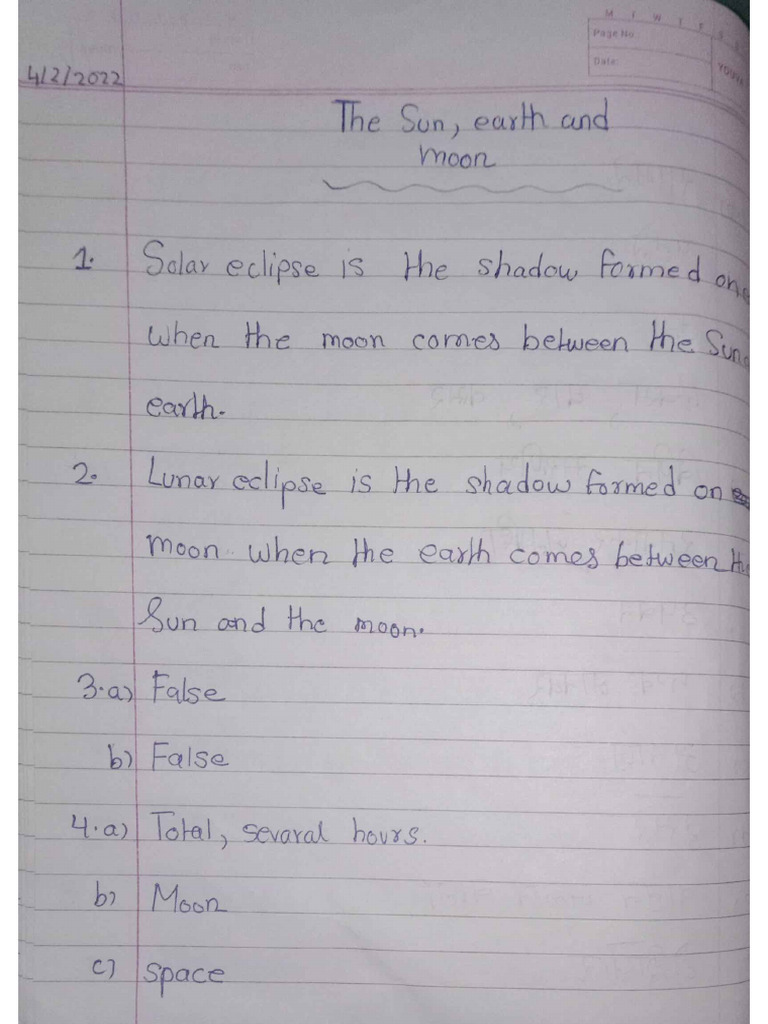 M T W T F S S
Page No
Date:
YOUVA
4/2/2022
The Sun, earth and
moon
1. Solar eclipse is the shadow formed on
when the moon comes between the Sun
earth.
2. Lunar eclipse is the shadow formed on
moon when the earth comes between the
Sun and the moon.
3.a) False
b) False
4.a) Total, sevaral hours.
b) Moon
c) space